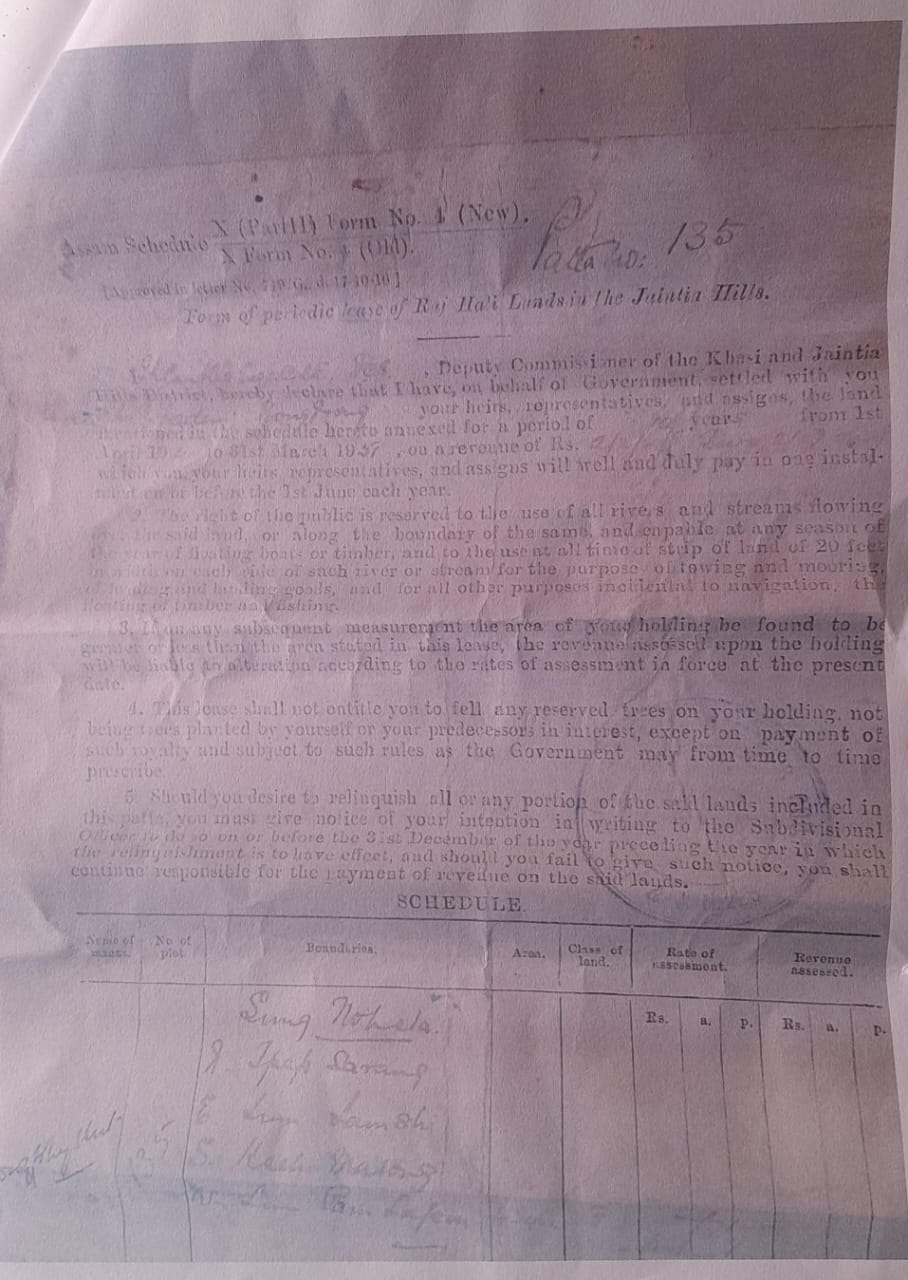 X (Part II) Form No. 4 (New).
Assam Schedule
X Form No. 4 (Old).
Patta No: 135
[Approved in letter No. G., d. 17-10-16]
Form of periodic lease of Raj Hali Lands in the Jaintia Hills.
I, , Deputy Commissioner of the Khasi and Jaintia
Hills District, hereby declare that I have, on behalf of Government, settled with you
your heirs, representatives, and assigns, the land
mentioned in the schedule hereto annexed for a period of years from 1st
April to 31st March 1957, on a revenue of Rs.
which you, your heirs, representatives, and assigns will well and duly pay in one instal-
ment on or before the 1st June each year.
2. The right of the public is reserved to the use of all rivers and streams flowing
over the said land, or along the boundary of the same, and capable at any season of
the year of floating boats or timber, and to the use at all time of strip of land of 20 feet
in width on each side of such river or stream for the purpose of towing and mooring,
and landing goods, and for all other purposes incidental to navigation, the
floating of timber and fishing.
3. If on any subsequent measurement the area of your holding be found to be
greater or less than the area stated in this lease, the revenue assessed upon the holding
will be liable to alteration according to the rates of assessment in force at the present
date.
4. This lease shall not entitle you to fell any reserved trees on your holding, not
being trees planted by yourself or your predecessors in interest, except on payment of
such royalty and subject to such rules as the Government may from time to time
prescribe.
5. Should you desire to relinquish all or any portion of the said lands included in
this patta, you must give notice of your intention in writing to the Subdivisional
Officer to do so on or before the 31st December of the year preceding the year in which
the relinquishment is to have effect, and should you fail to give such notice, you shall
continue responsible for the payment of revenue on the said lands.
SCHEDULE.
Name of mauza. No of plot. Boundaries. Area. Class of land. Rate of assessment. Revenue assessed.
Rs. a. p. Rs. a. p.
E
S.